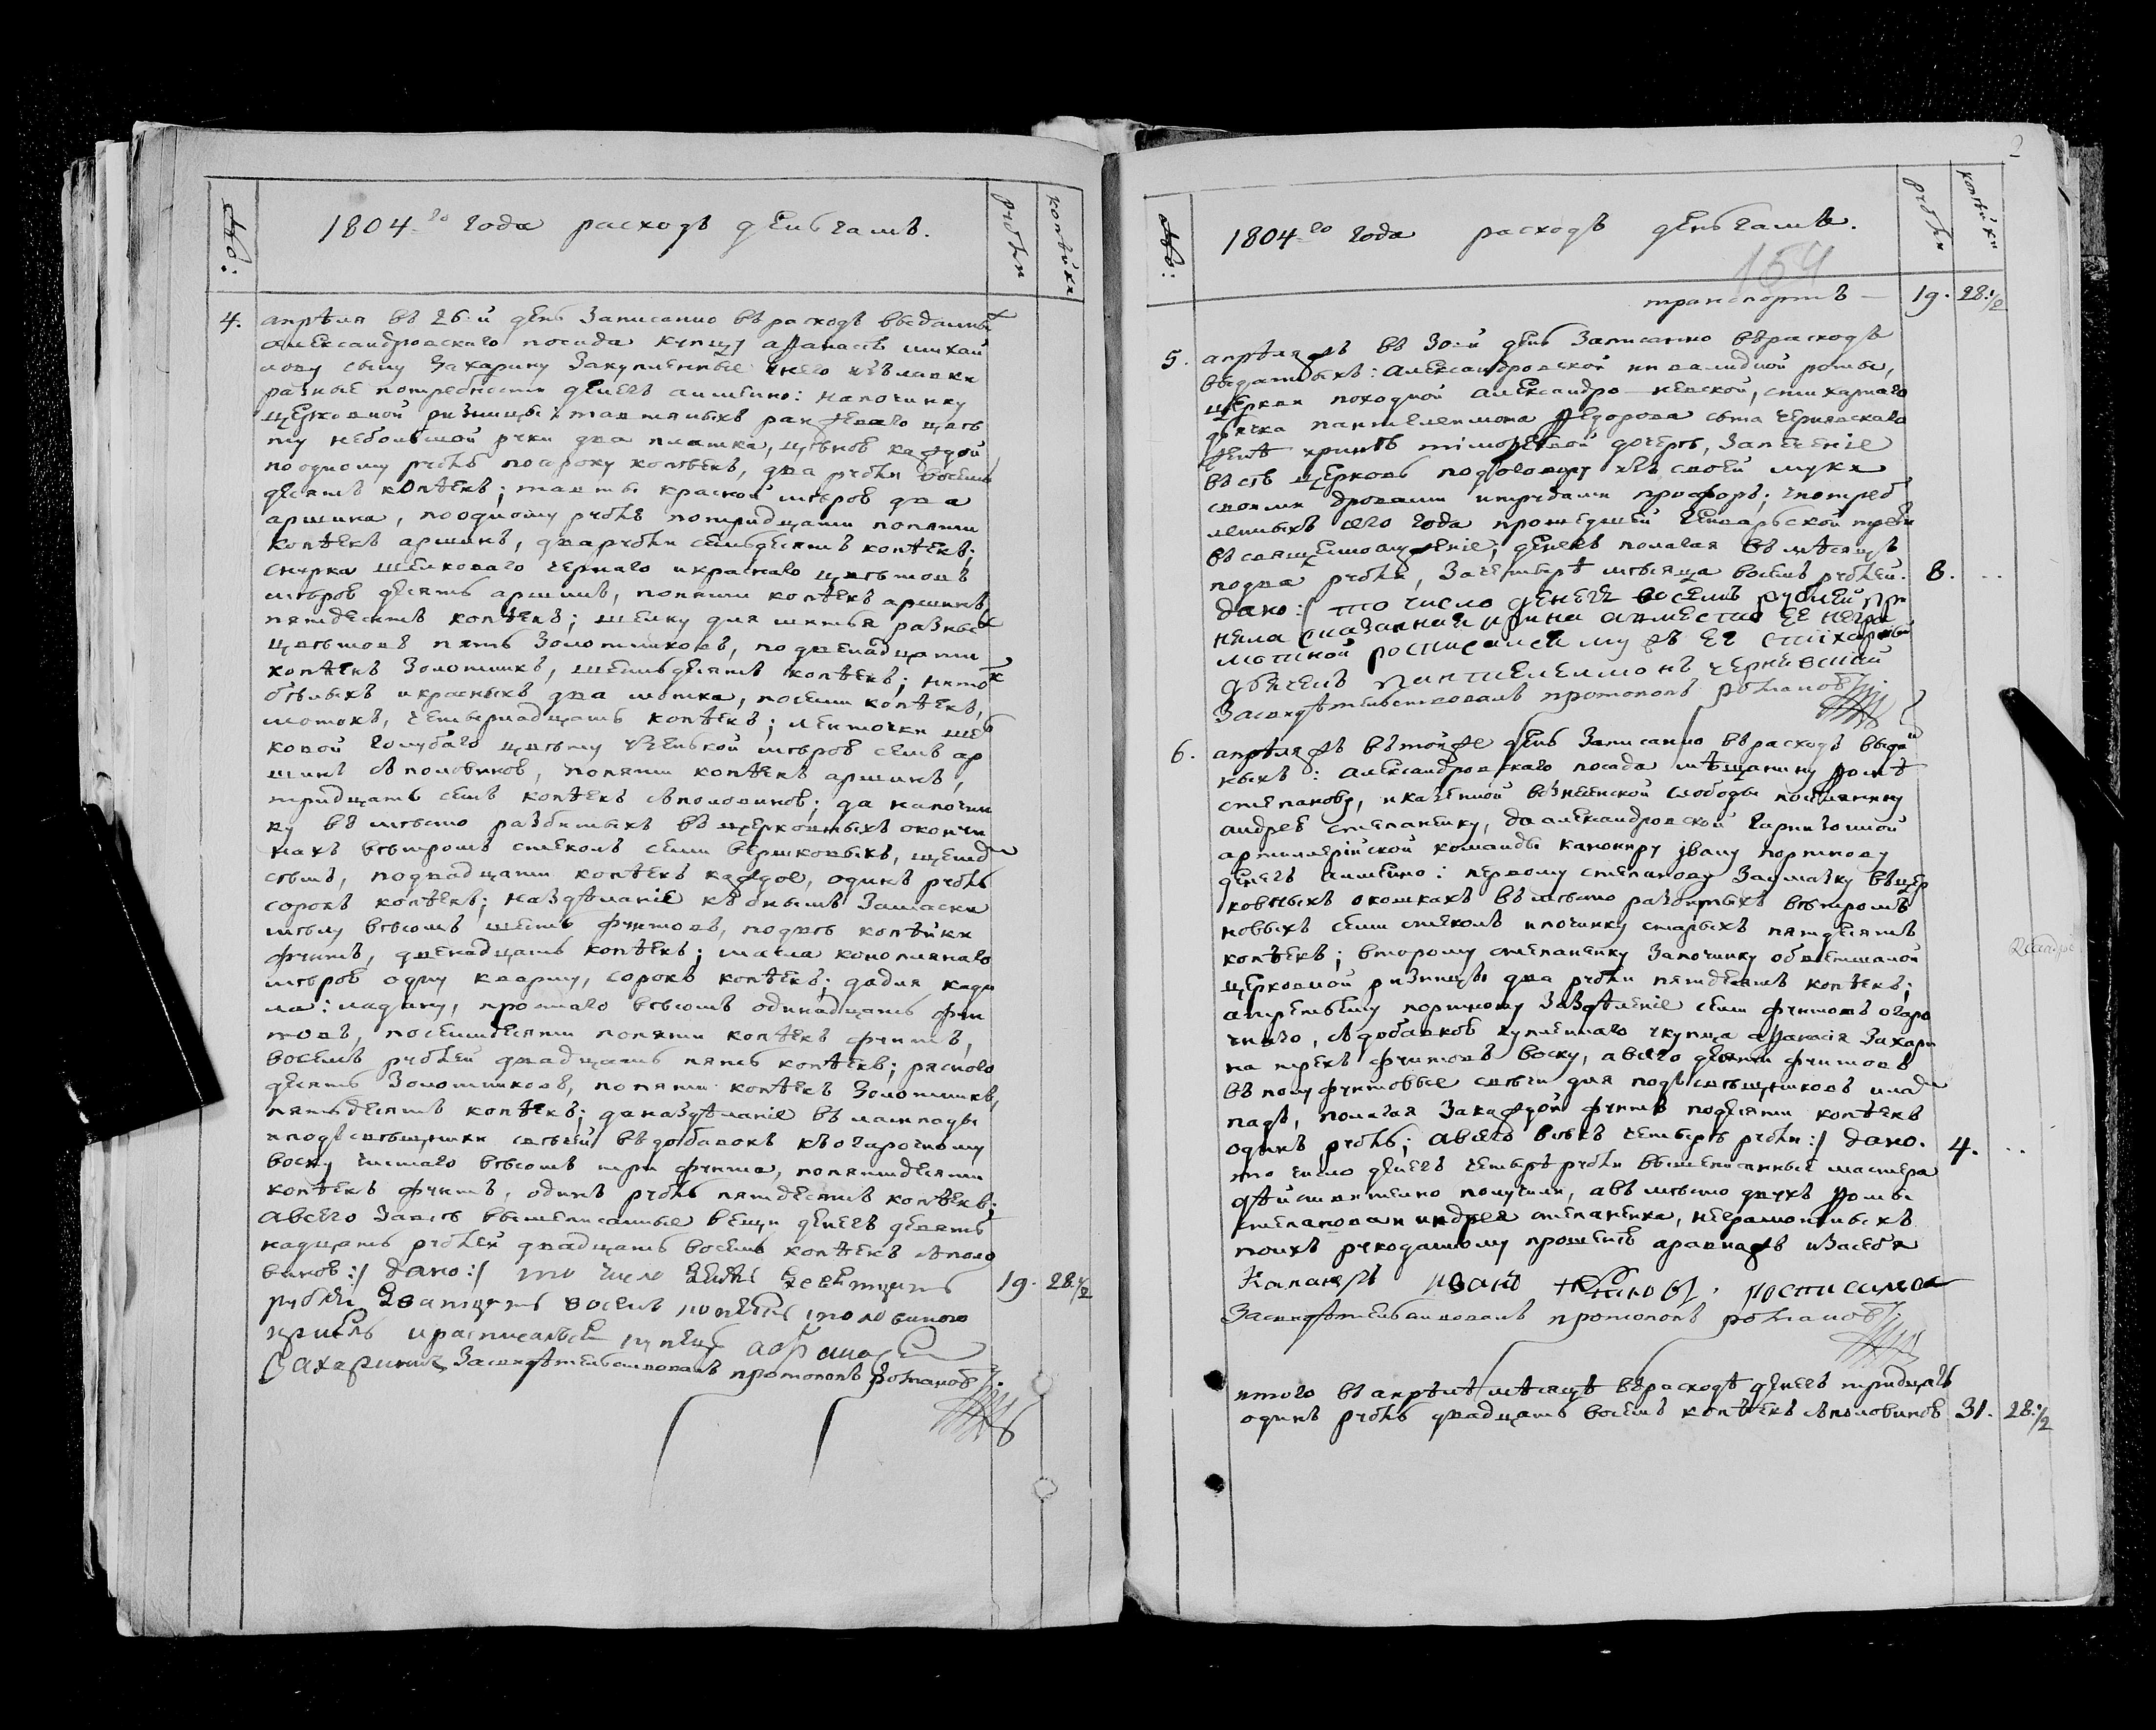 №:
1804-го года расходъ деньгамъ.
рубли
копѣйки
4.
апрѣля въ 26-й день записано въ расходъ выданные
александровскаго посада купцу афанасѣ михай
лову сыну захарину закупленные унего изъ лавки
разные потребности денегъ аименно: напочинку
церковной ризницы: тавтяныхъ цвѣ
ту небольшой руки два платка, цѣною каждой
поодному рублю посороку копѣекъ, два рубли восемь
десятъ копѣекъ; тавты краской мѣрою два
аршина, поодному рублю потридцати попяти
копѣекъ аршинъ, двярубли семьдесятъ копѣекъ;
снурка шелковаго чернаго икраснаго цвѣтовъ
мѣрою десять аршинъ, попяти копѣекъ аршинъ,
пятдесятъ копѣекъ; шелку для шитья разныхъ
цвѣтовъ пять золотниковъ, подвенадцати
копѣекъ золотникъ, шестьдесятъ копѣекъ; нитокъ
бѣлыхъ икрасныхъ два мотка, посеми копѣекъ,
мотокъ, четырнадцать копѣекъ; ленточки шел
ковой голубаго цвѣту узенькой мѣрою семь ар
шинъ съполовиною, попяти копѣекъ аршинъ,
тридцать семь копѣекъ съполовиною; да напочин
ку въ мѣсто разбитыхъ въ церковныхъ окончи
нахъ вѣтромъ стеколъ семи вершковыхъ,
подвадцати копѣекъ каждое, одинъ рубль
сорокъ копѣекъ; наздѣланіе къ онымъ замаски
мѣлу вѣсомъ шесть фунтовъ, подвѣ копѣйки
фунтъ, двенадцать копѣекъ; масла конопляного
мѣрою одну кварту, сорокъ копѣекъ; дадля кади
ла: ладану, простаго вѣсомъ одинадцать фун
товъ, посемидесяти попяти копѣекъ фунтъ,
восемь рублей двадцать пять копѣекъ; распого
десять золотниковъ, попяти копѣекъ золотникъ,
пятьдесятъ копѣекъ; даназдѣланіе въ лампады
иподсвѣщники свѣчей въ добавокъ къ огарочному
воску чистаго вѣсомъ три фунта, попятидесяти
копѣекъ фунтъ, одинъ рубль пятдесятъ копѣекъ;
авсего завсѣ вышеписанные вещи денегъ девять
надцать рублей двадцать восемь копѣекъ съполо
виною:/ дано:/ то число денегъ девятнацать
рублей двацать восемъ копѣекъ споловиною
19. 28.1/2
купецъ афанасей
Захаринъ Засвидѣтельствовалъ протопопъ романовъ
2
№:
1804-го года расходъ деньгамъ.
154
рубли
копѣйки
транспортъ — 19. 28.1/2
5.
апрѣля въ 30-й день записано въ расходъ
выданныхъ: александровской инвалидной роты,
церкви походной александро-невской, стихарнаго
дьячка пантелеимона федорова сына чернявскаго
женѣ иринѣ тимофѣевой дочерѣ, запеченіе
въ сѣ церковь подоговору изъ своей муки
своими дровами итрудами просфоръ; употреб
ленныхъ сего года прошедшей генварьской трети
въ священнослуженіе, денегъ полагая въ мѣсяцъ
подва рубли, зачетыре мѣсяца восемь рублей.
8. ..
дано:/ то число денегъ восемъ рублей при
няла сказанная ирина авместо ее негра
мотной росписался мужъ ее стихарный
дьячекъ пантелеимонъ чернявский
Засвидѣтельствовалъ протопопъ романовъ
6.
апрѣля въ тойже день записано въ расходъ выдан
ныхъ: александровскаго посада мѣщанину фомѣ
степанову, иказенной вознесенской слободы поселянину
андрею степаненку, даалександровской гарнизонной
артиллерійской команды канониру ивану портнову
денегъ аименно: первому степанову замазку въцер
ковныхъ окошкахъ въ мѣсто разбитыхъ вѣтромъ
новыхъ семи стеколъ ипочинку старыхъ пятдесятъ
копѣекъ; второму степаненку започинку обветшалой
церковной ризницы два рубли пятдесятъ копѣекъ;
атретьему портному заздѣланіе семи фунтовъ огаро
чнаго, съдобавкою купленнаго укупца афанасія захари
на трехъ фунтовъ воску, авсего десяти фунтовъ
въ полуфунтовые свѣчи для подсвѣщниковъ илам
падъ, полагая закаждой фунтъ подесяти копѣекъ
одинъ рубль; авсего всѣмъ четыре рубли:/ дано.
4. ..
то число денегъ четыре рубли вышеписанные мастера
дѣйствительно получили, авъ мѣсто двухъ фомы
степанова и андрея степаненка, неграмотныхъ
поихъ рукоданному прошенію аравнажъ изасебя
Канонеръ иванъ росписался
Засвидѣтельствовалъ протопопъ романовъ
итого въ апрѣлѣ мѣсяцѣ въ расходѣ денегъ тридцать
одинъ рубль двадцать восемь копѣекъ съполовиною
31. 28.1/2